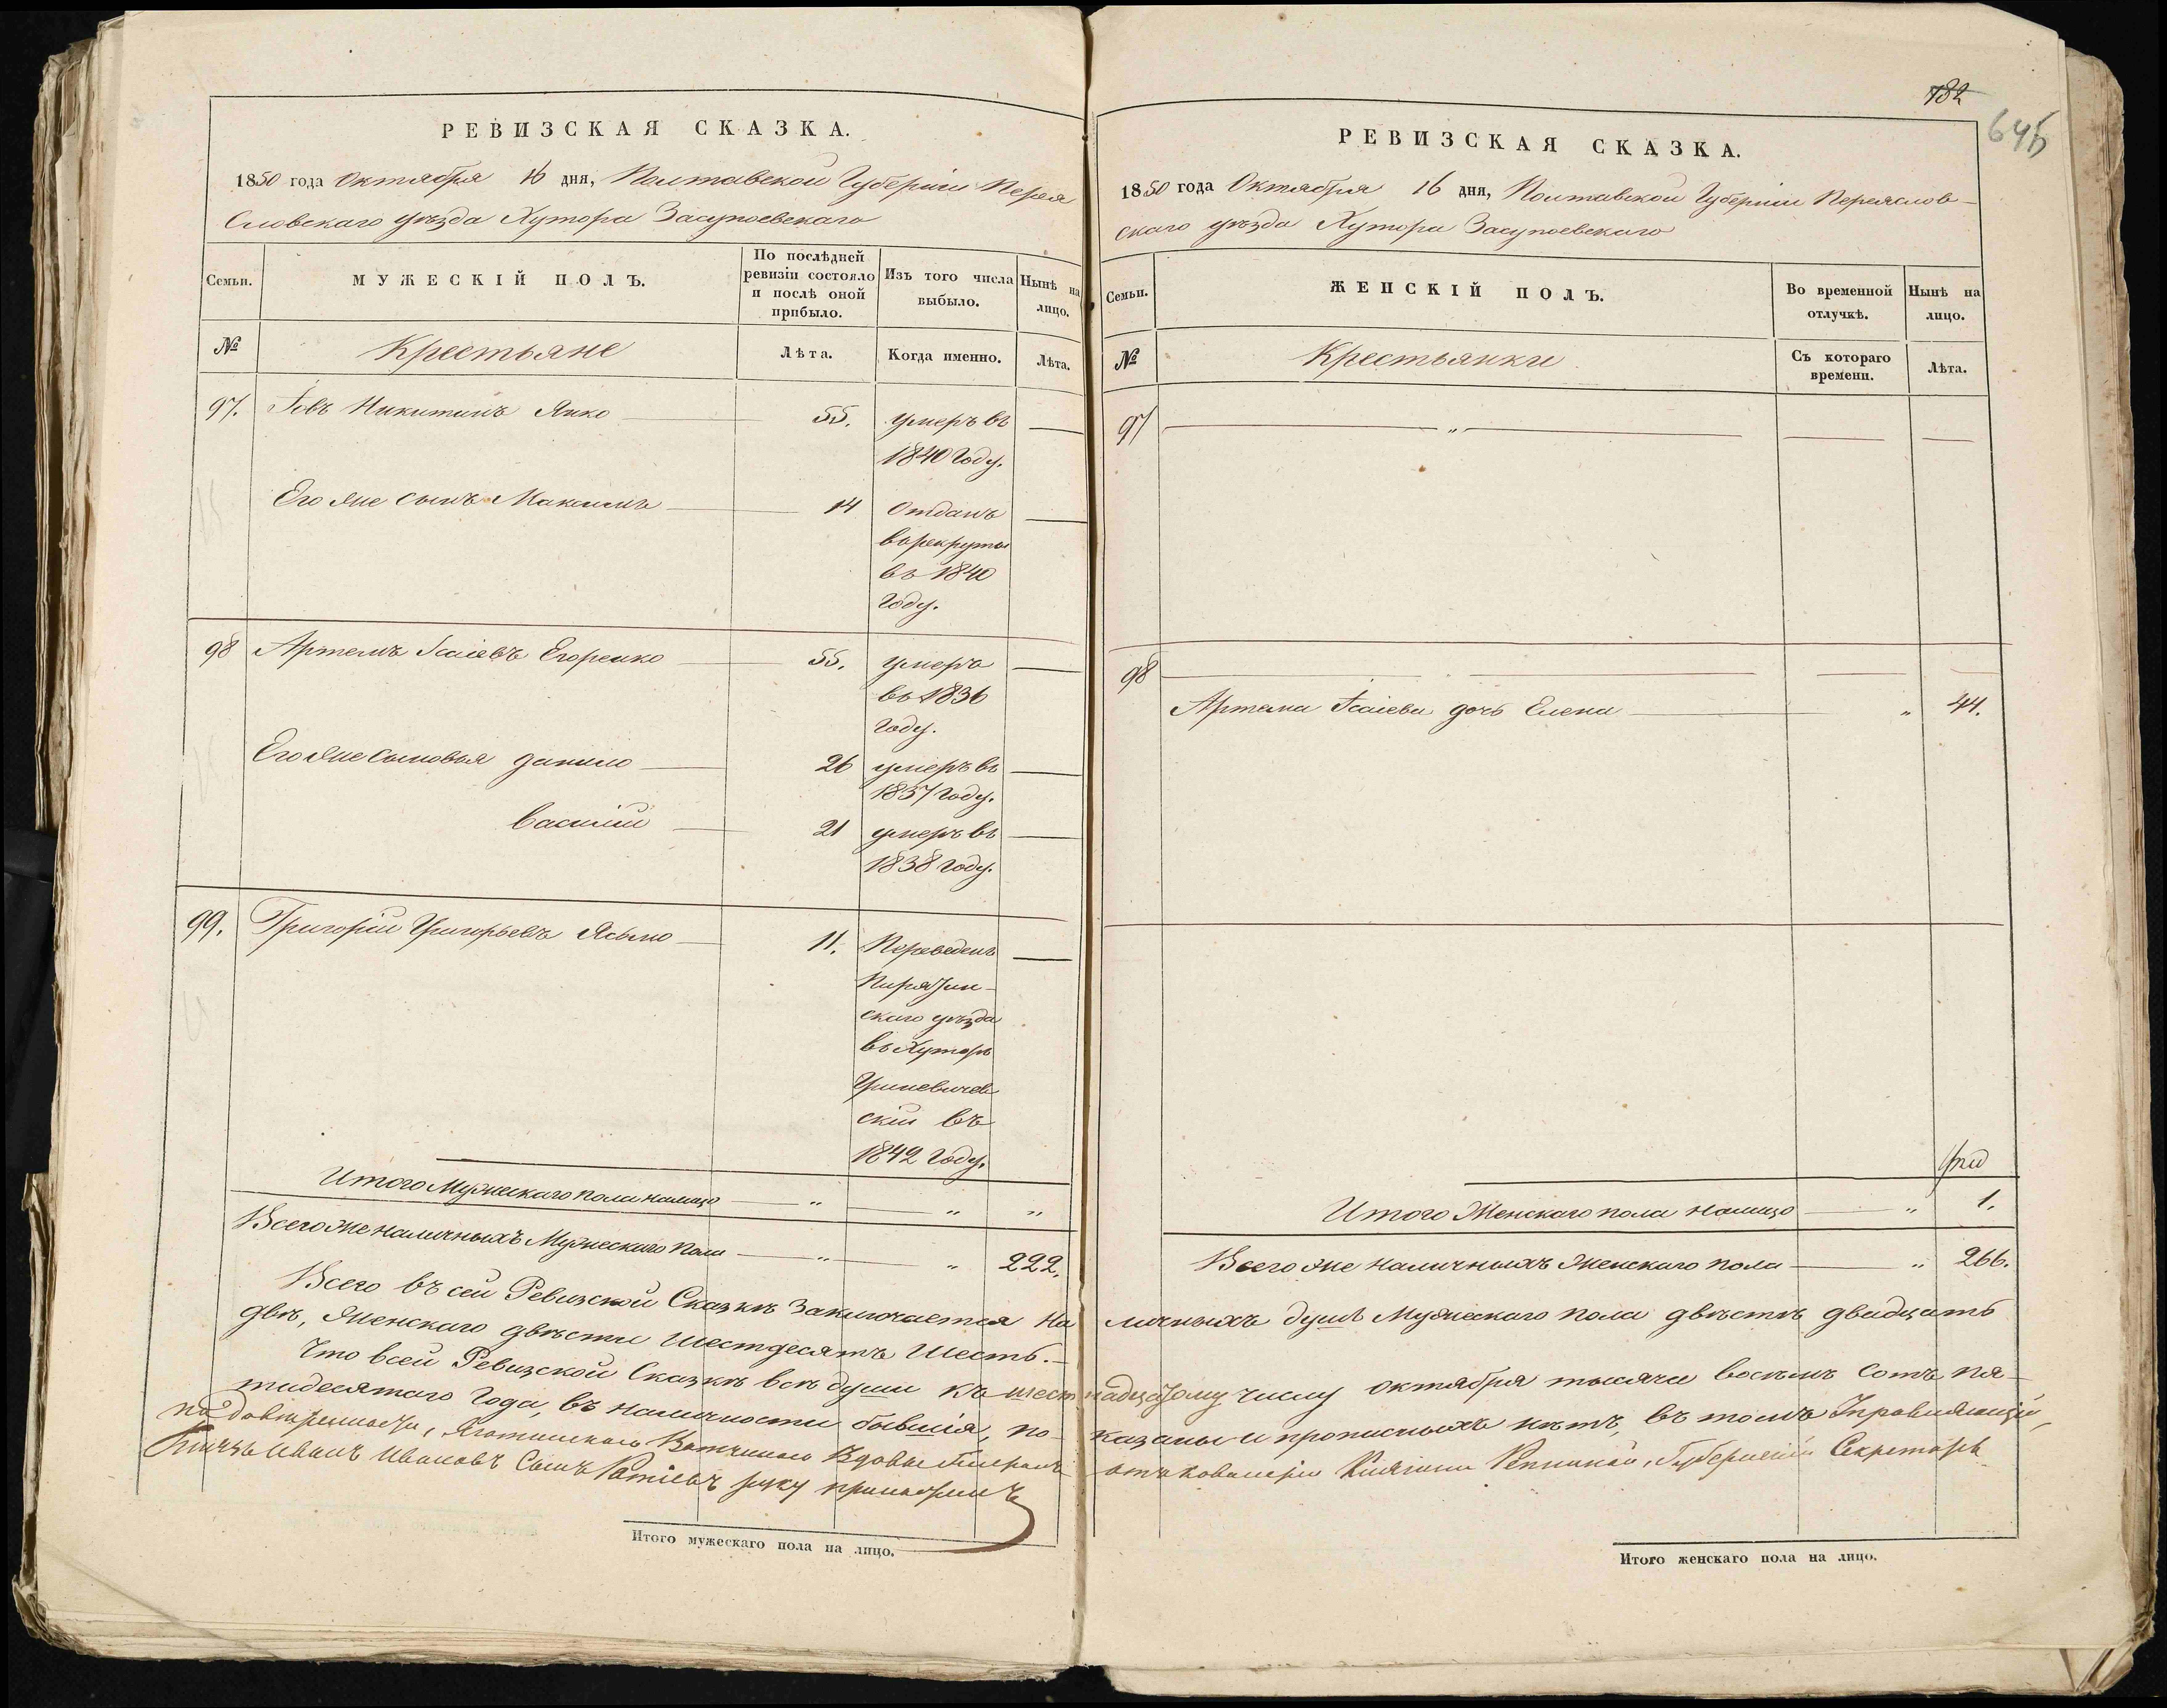 РЕВИЗСКАЯ СКАЗКА.
1850 года Октября 16 дня, Полтавской Губернiи Перея
словскаго уѣзда Хутора Засупоевскаго
Семьи.
МУЖЕСКIЙ ПОЛЪ.
По послѣдней
ревизiи состояло
и послѣ оной
прибыло.
Изъ того числа
выбыло.
Нынѣ на
лицо.
№
Крестьяне
Лѣта.
Когда именно.
Лѣта.
97. Iовъ Никитинъ Янко 55. умеръ въ
1840 году.
Его же сынъ Максимъ 14 Отданъ
въ рекруты
въ 1840
году.
98 Артемъ Iсаiевъ Егоренко 55. умеръ
въ 1836
году.
Его же сыновья Данило 26 умеръ въ
1837 году.
Василiй 21 умеръ въ
1838 году.
99. Григорiй Григорьевъ 11. Переведенъ
Пирятин-
скаго уѣзда
въ Хуторъ
скiй въ
1842 году.
Итого Мужескаго пола налицо " " "
Всего же наличныхъ Мужескаго пола " " 222.
Всего въ сей Ревизской Сказкѣ Заключается На
двѣ, Женскаго двѣсти шестдесятъ шесть.
Что всей Ревизской Сказкѣ всѣ души къ шест
тидесятаго года, въ наличности бывшiя, по-
по довѣренности, Яготинскаго Вдовы Генерала
Князь Иванъ Ивановъ Сынъ Ратiевъ руку приложилъ
Итого мужескаго пола на лицо.
182
645
РЕВИЗСКАЯ СКАЗКА.
1850 года Октября 16 дня, Полтавской Губернiи Переяслов-
скаго уѣзда Хутора Засупоевскаго
Семьи.
ЖЕНСКIЙ ПОЛЪ.
Во временной
отлучкѣ.
Нынѣ на
лицо.
№
Крестьянки
Съ котораго
времени.
Лѣта.
97 "
98
Артема Iсаiева дочь Елена " 44.
Итого Женскаго пола налицо " 1.
Всего же наличныхъ Женскаго пола " 266.
личныхъ душъ Мужескаго пола двѣстѣ двадцать
надцатому числу октября тысяча восемь сотъ пя-
казаны и прописныхъ нѣтъ, въ томъ Управляющiй,
отъ кавалерiи Княгини Репниной, Губернскiй Секретарь
Итого женскаго пола на лицо.